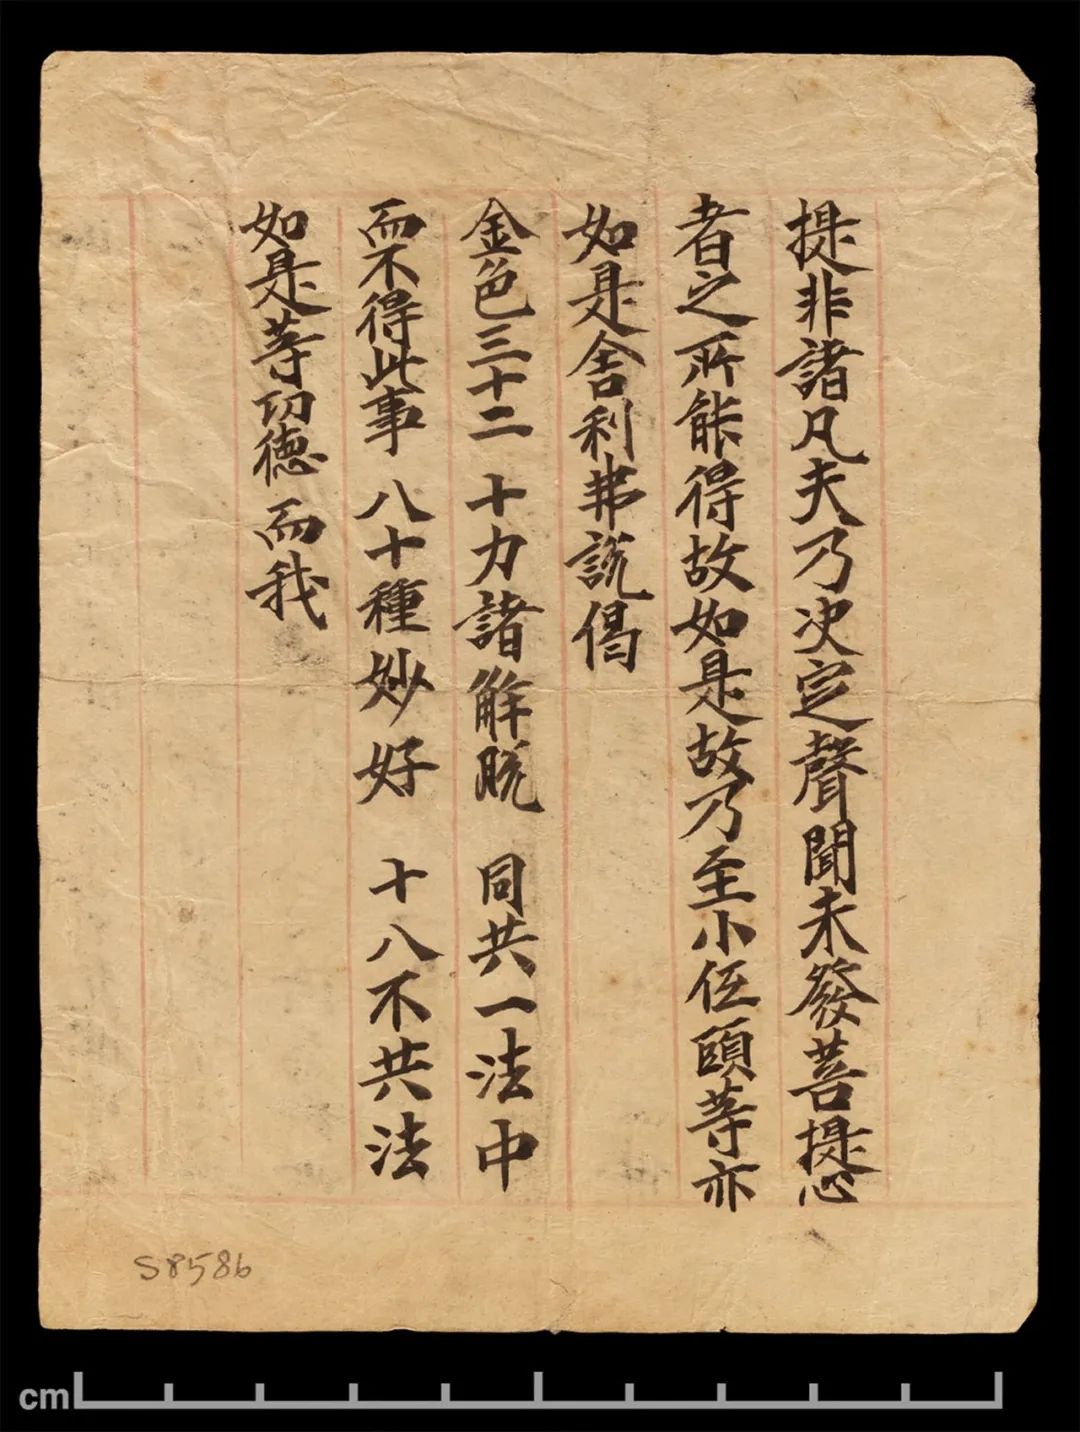 提非諸凡夫乃決定聲聞未發菩提心
者之所能得故如是故乃至小伍頤等亦
如是舍利弗說偈
金色三十二 十力諸解脫 同共一法中
而不得此事 八十種妙好 十八不共法
如是等功德 而我
S8586
cm